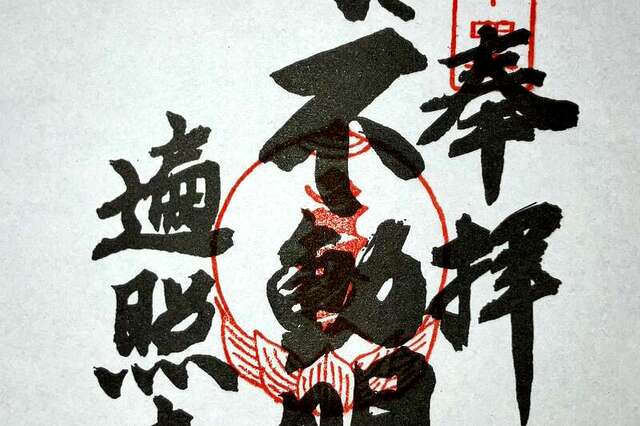 奉拝
不動明
遍照